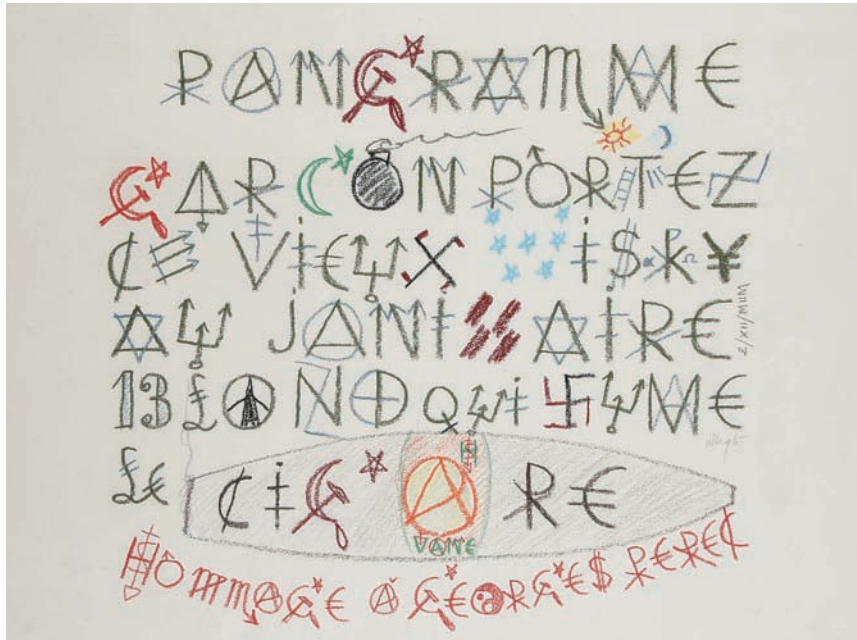 PANGRAMME
GARÇON PORTEZ
CE VIEUX WISKY
AU JANISSAIRE
BLOND QUI FUME
LE CIGARE
HAVANE
HOMMAGE A GEORGES PEREC